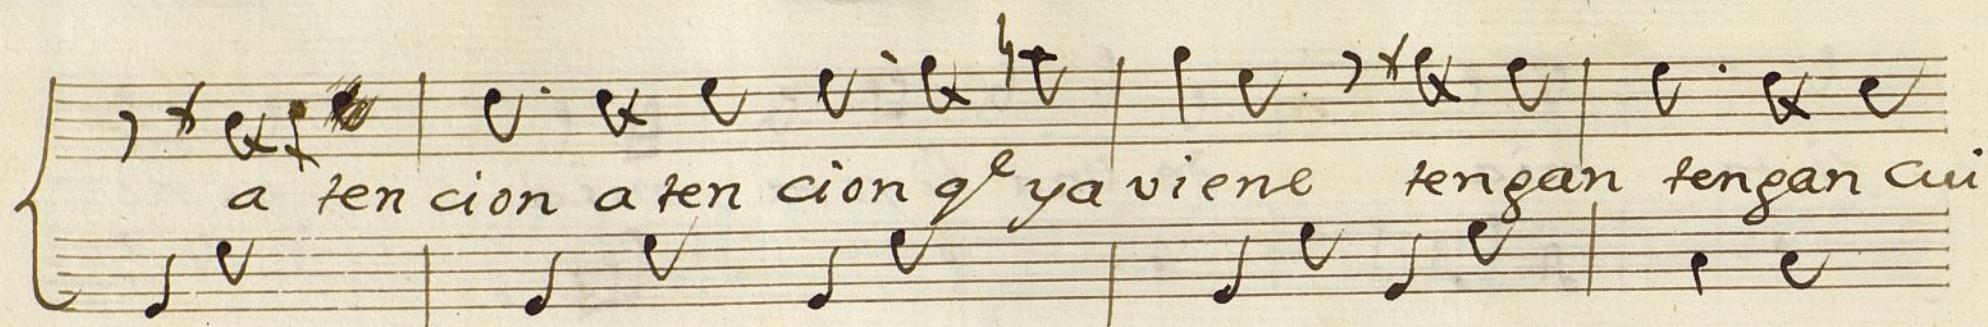 a ten cion a ten cion qe ya viene tengan tengan cui